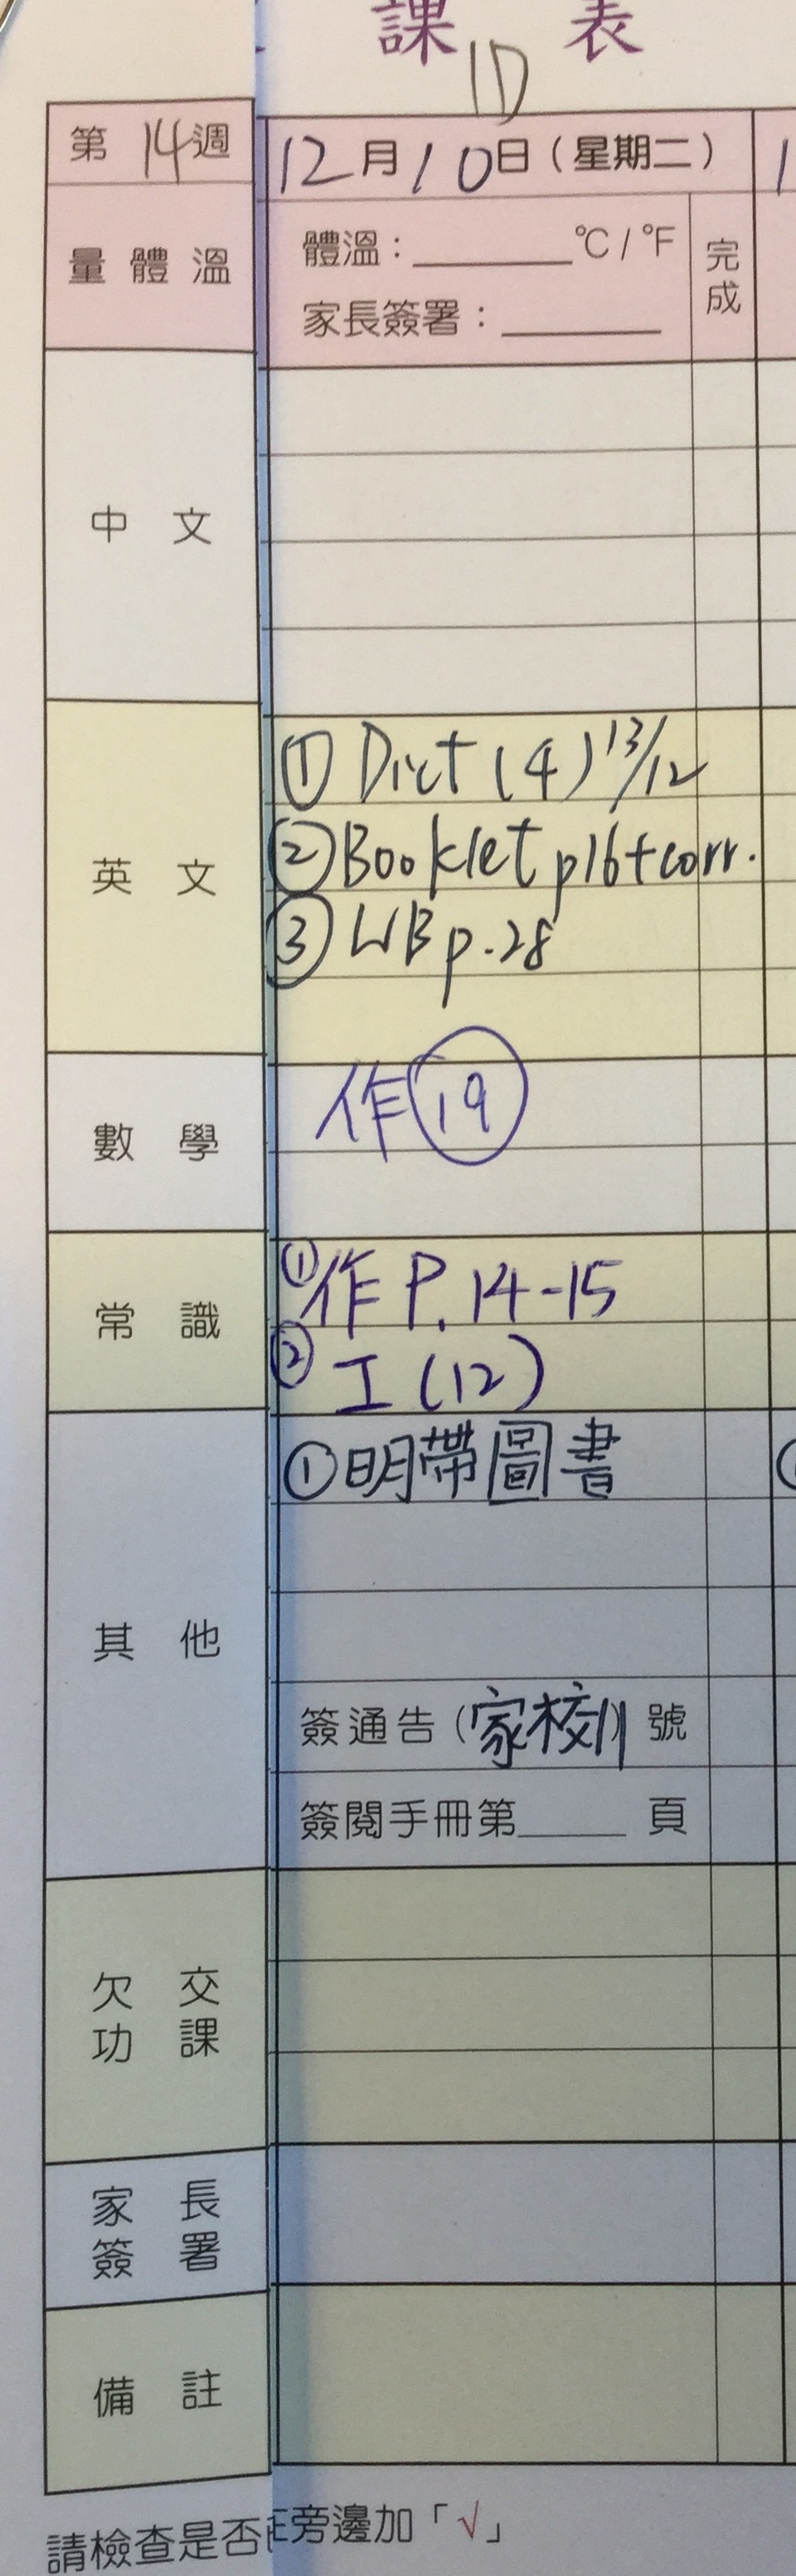 課 表
1D
第 14 週
12月10日（星期二）
量體溫
體溫：______°C / °F
完成
家長簽署：______
中文
英文
① Dict (4) 13/12
② Booklet p16+corr.
③ WB p.28
數學
作⑲
常識
①作 P.14-15
② 工(12)
其他
①明帶圖書
簽通告（家校11）號
簽閱手冊第____頁
欠交功課
家長簽署
備註
請檢查是否
旁邊加「√」